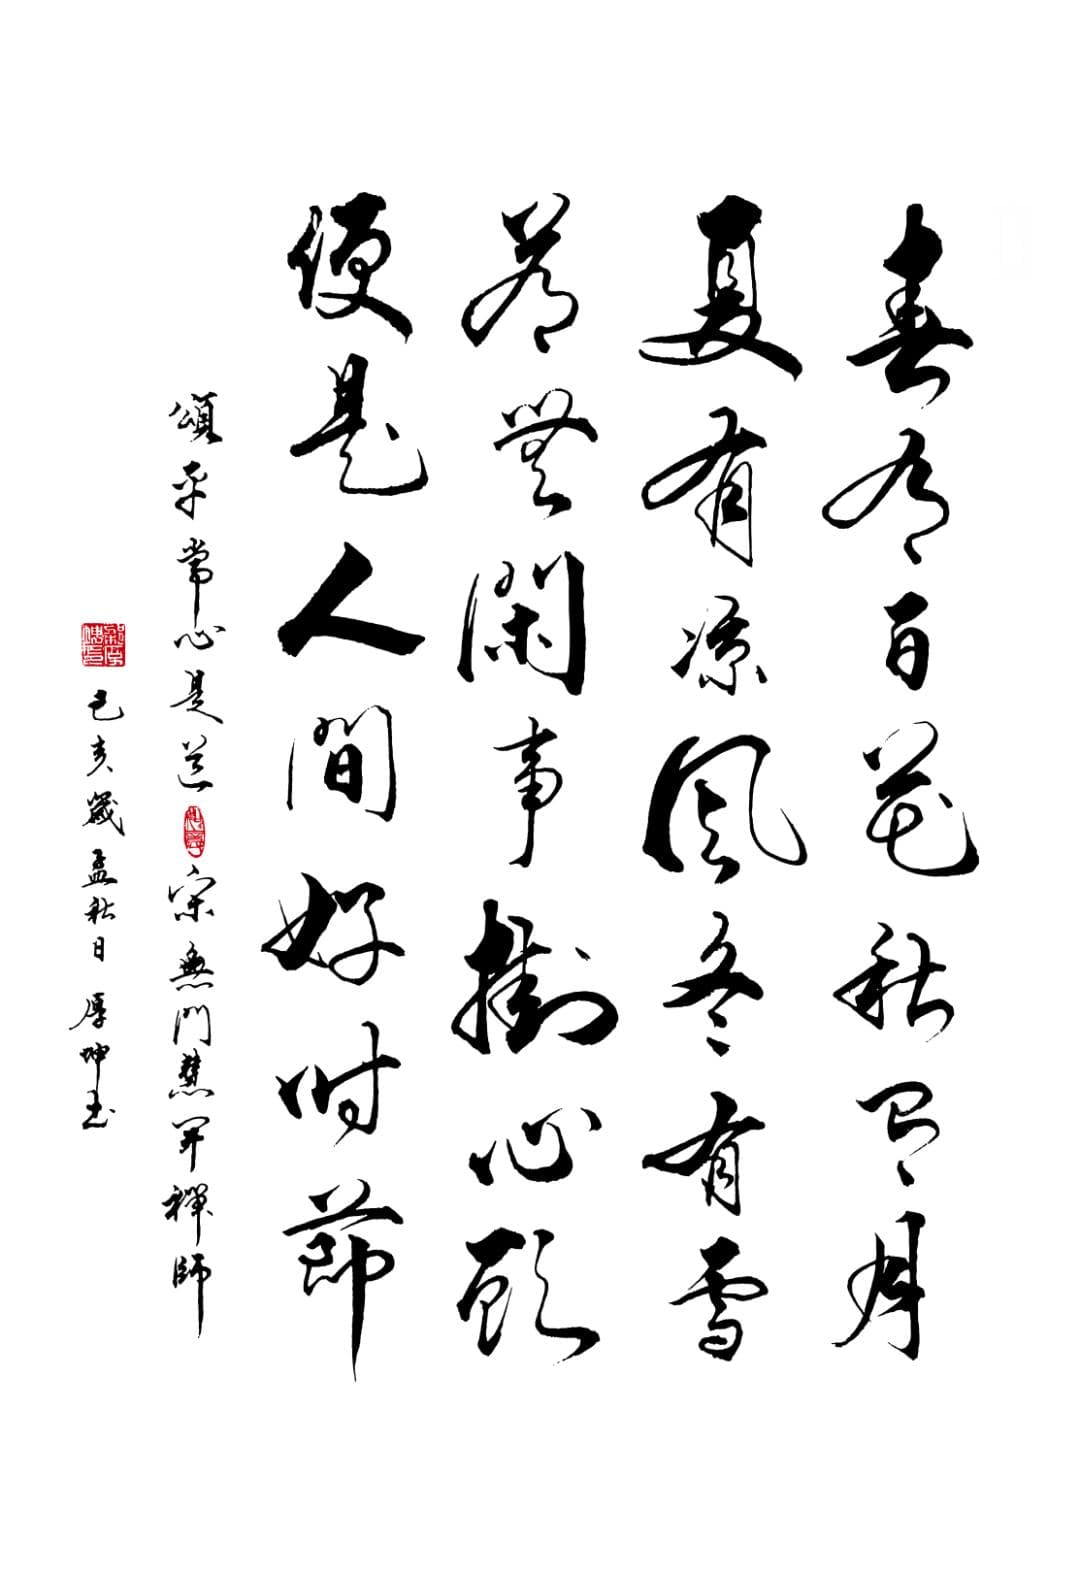 春有百花秋有月
夏有凉風冬有雪
若無閑事掛心頭
便是人間好时節
頌平常心是道 宋無門慧開禪師
己亥歲孟秋日厚坤书